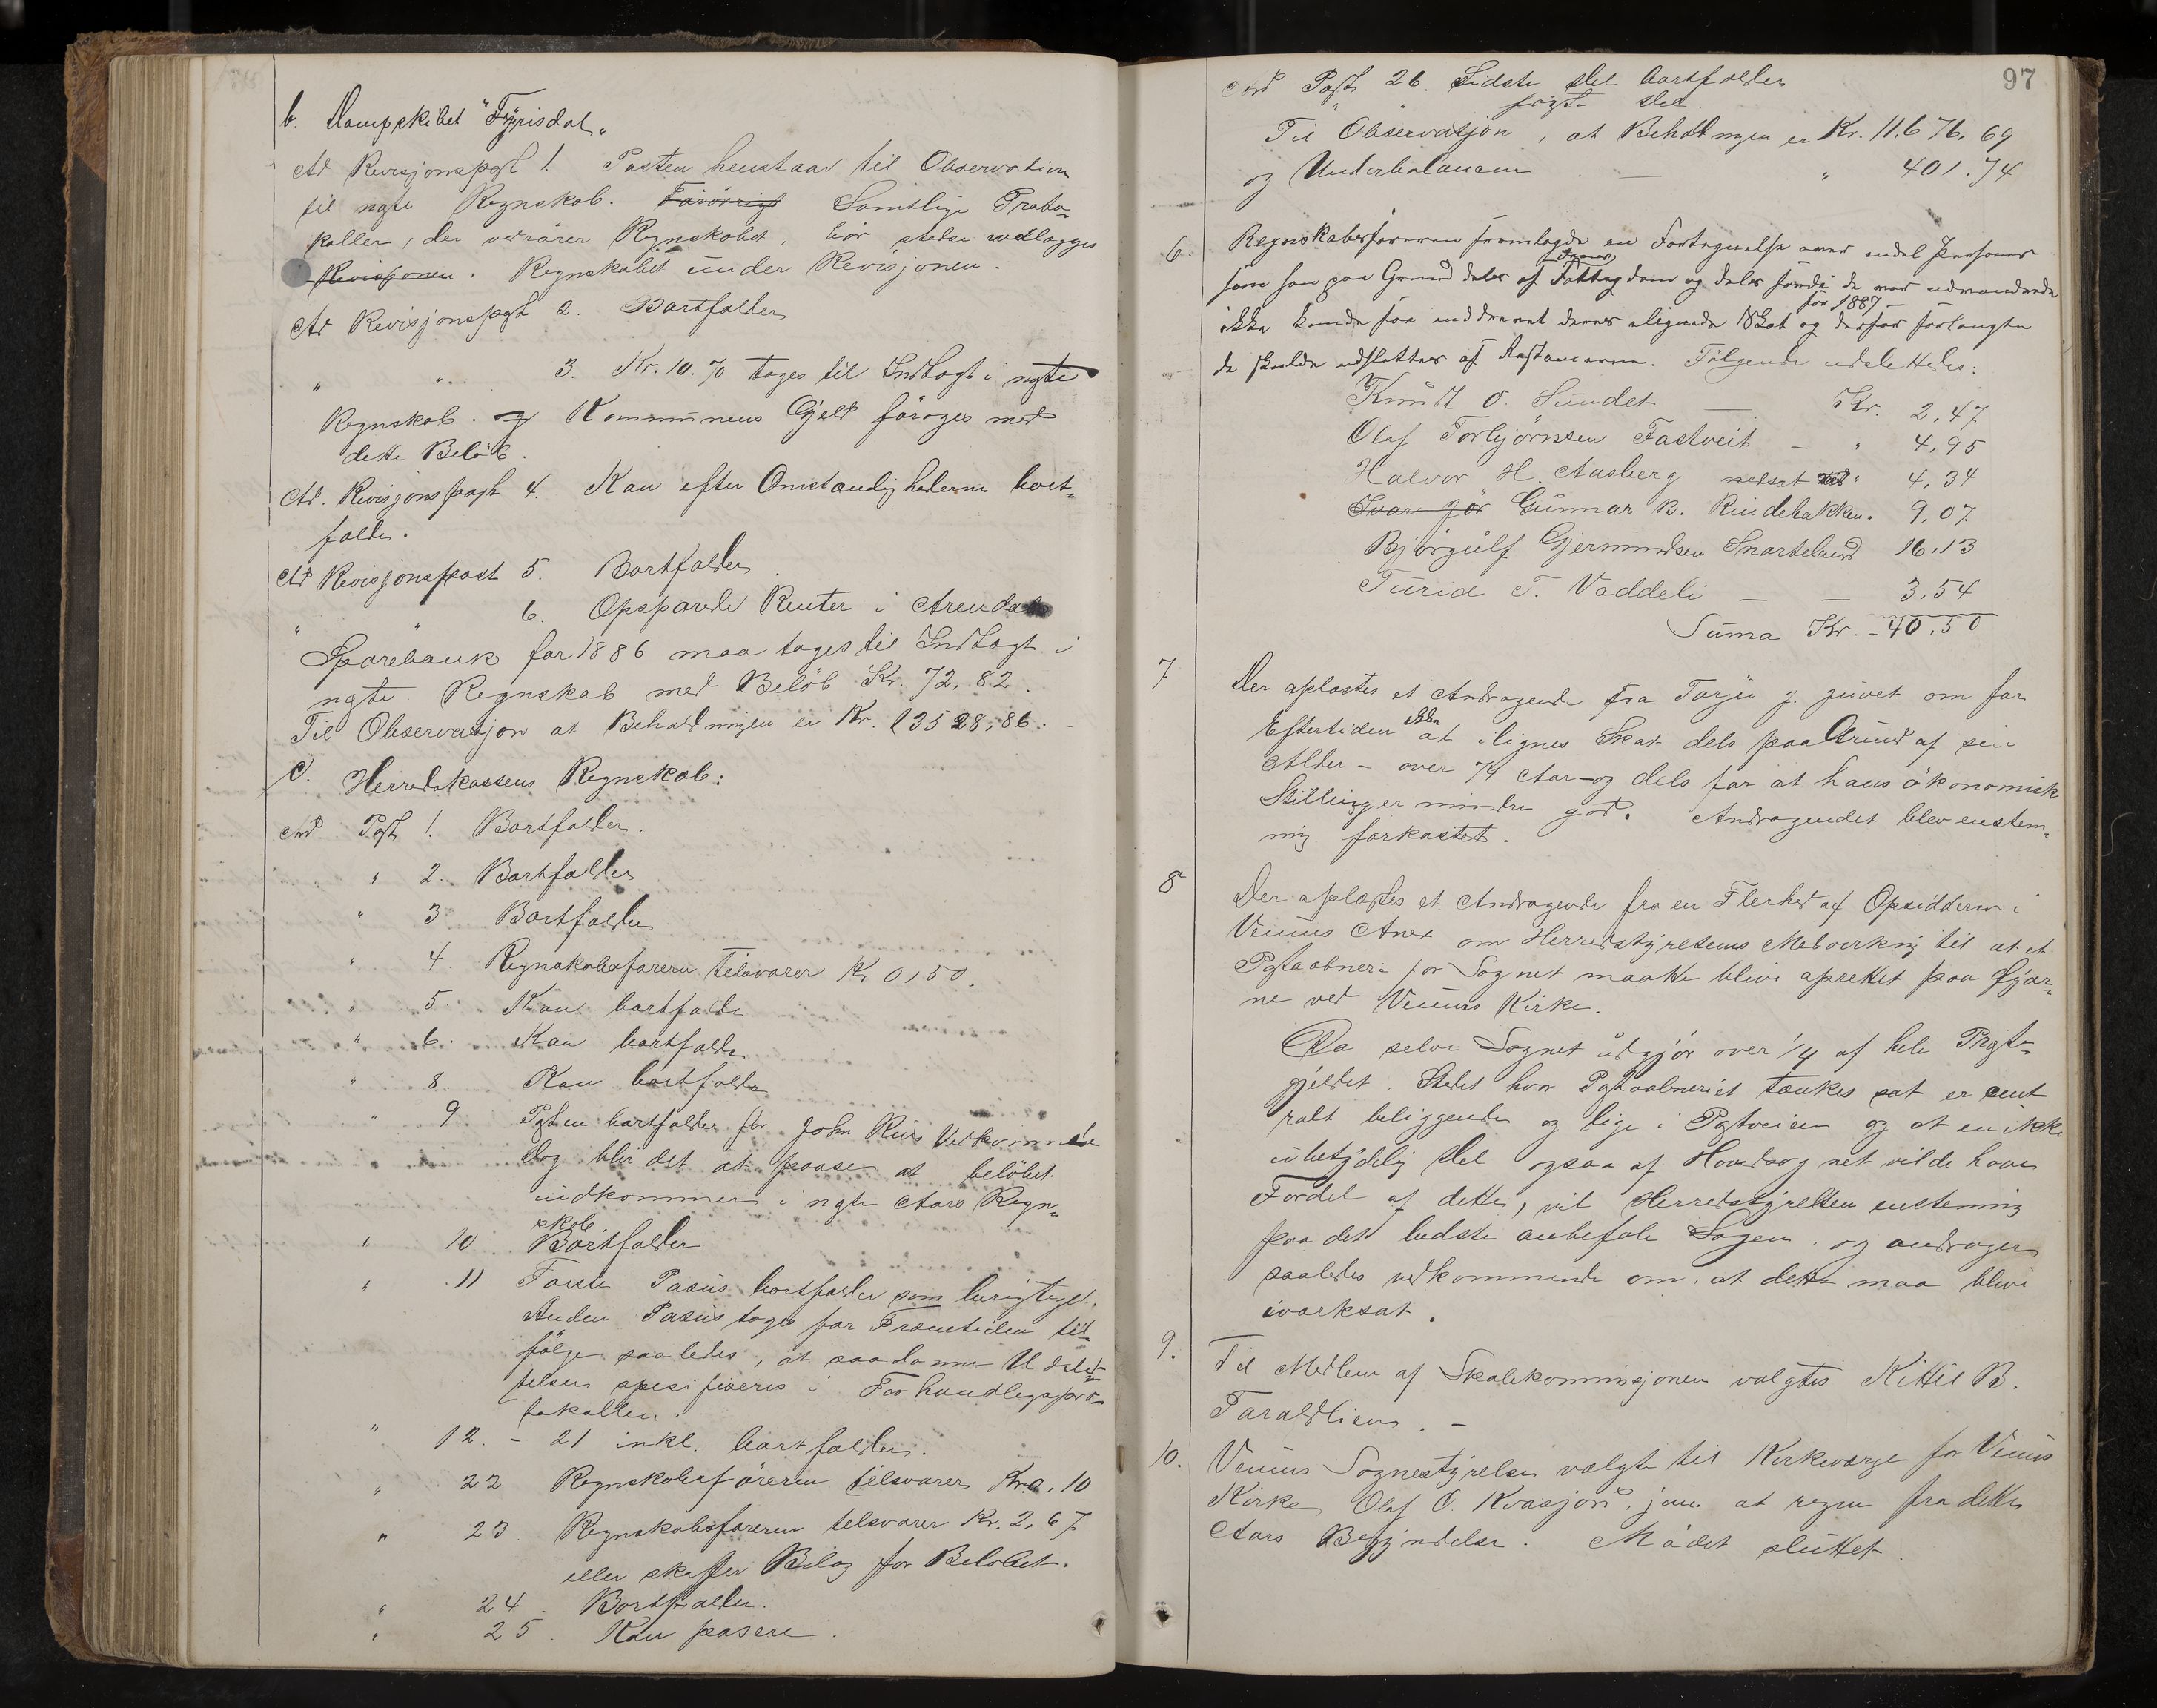 b. Dampskibet "Fyrisdal"
Ad Revisjonspost 1. Posten henstaar til Observation
til næste Regnskab. Forövrigt Samtlige Proto-
koller, der vedrører Regnskabet, bör stedse vedlægges
Revisjonen. Regnskabet under Revisjonen.
Ad Revisjonspost 2. Bortfalder
" " 3. Kr. 10.70 tages til Indtægt i næste
Regnskab. og Kommunens Gjeld forøges med
dette Belöb.
Ad. Revisjonspost 4. Kan efter Omstændighederne bort-
falde.
Ad Revisjonspost 5. Bortfalder
" " 6. Opsparede Renter i Arendals
Sparebank for 1886 maa tages til Indtægt i
næste Regnskab med Belöb Kr. 72,82.
Til Observasjon at Beholdningen er Kr. 13528,86.
C. Herredskassens Regnskab:
And Post 1. Bortfalder.
" 2. Bortfalder
" 3. Bortfalder
" 4. Regnskabsføreren tilsvarer Kr 0,50.
5. Kan bortfalde
" 6. Kan bortfalde
" 8. Kan bortfalde
" 9 Posten bortfalder for John Rius Vedkommende
dog blir det at paase at belöbet
indkommer i næste Aars Regn-
skab.
" 10 Bortfalder
" 11 Første Pasus bortfalder som berigtiget.
Anden Pasus tages for Fremtiden til-
følge saaledes, at saadanne Udslet-
telser spesifiseres i Forhandlingspro-
tokollen.
" 12. - 21 inkl. bortfalder.
" 22 Regnskabsföreren tilsvarer Kr. 0,10
" 23. Regnskabsføreren tilsvarer Kr. 2,67
eller skaffer Bilag for Beløbet.
" 24. Bortfalder.
" 25. Kan pasere.
97
And Post 26. Sidste Del bortfalder
" " første Del.
Til Observasjon, at Beholdningen er Kr. 11.676,69
og Underbalancen — " 401.74
6. Regnskabsføreren fremlagde en Fortegnelse over endel Personer
som han paa Grund dels af Fattigdom og dels fordi de var udvandrede
for 1887
ikke kunde faa inddrevet deres ilignede Skat og derfor forlangte
de skulde udslettes af Restancerne. Følgende udslettedes:
Knudt O. Sundet — Kr. 2,47
Olaf Torbjörnsen Fastveit — " 4,95
Halvor H. Aasberg nedsat med " 4,34
Ivar Jör Gunnar B. Rindebakken. 9,07
Björgulf Gjermundsen Snarteland 16,13
Turid T. Vaddeli — — 3,54
Suma Kr. - 40,50
7 Der oplæstes et Andragende fra Tarje J. Juvet om for
ikke
Eftertiden at ilignes Skat dels paa Grund af sin
Alder - over 74 Aar - og dels for at hans ökonomisk
Stilling er mindre god. Andragendet blev enstem-
mig forkastet.
8 Der oplæstes et Andragende fra en Flerhed af Opsiddere i
Veums Anex om Herredstyrelsens Medvirkning til at et
Postaabneri for Sognet maatte blive oprettet paa Øyar-
ne ved Veums Kirke.
Da selve Sognet udgjör over 1/4 af hele Præste-
gjeldet. Stedet hvor Postaabneriet tænkes sat er cent
ralt beliggende og lige i Postveien og at en ikke
ubetydelig Del ogsaa af Hovedsognet vilde have
Fordel af dette, vil Herredstyrelsen enstemmig
paa det bedste anbefale Sagen og andrager
saaledes vedkommende om, at dette maa blive
iværksat.
9. Til Medlem af Skolekommissjonen valgtes Kittil B.
Taraldlien. -
10. Veums Sognestyrelse valgte til Kirkeværge for Veums
Kirke Olaf O. Kvasjord, jun. at regne fra dette
Aars Begyndelse. Mödet sluttet.